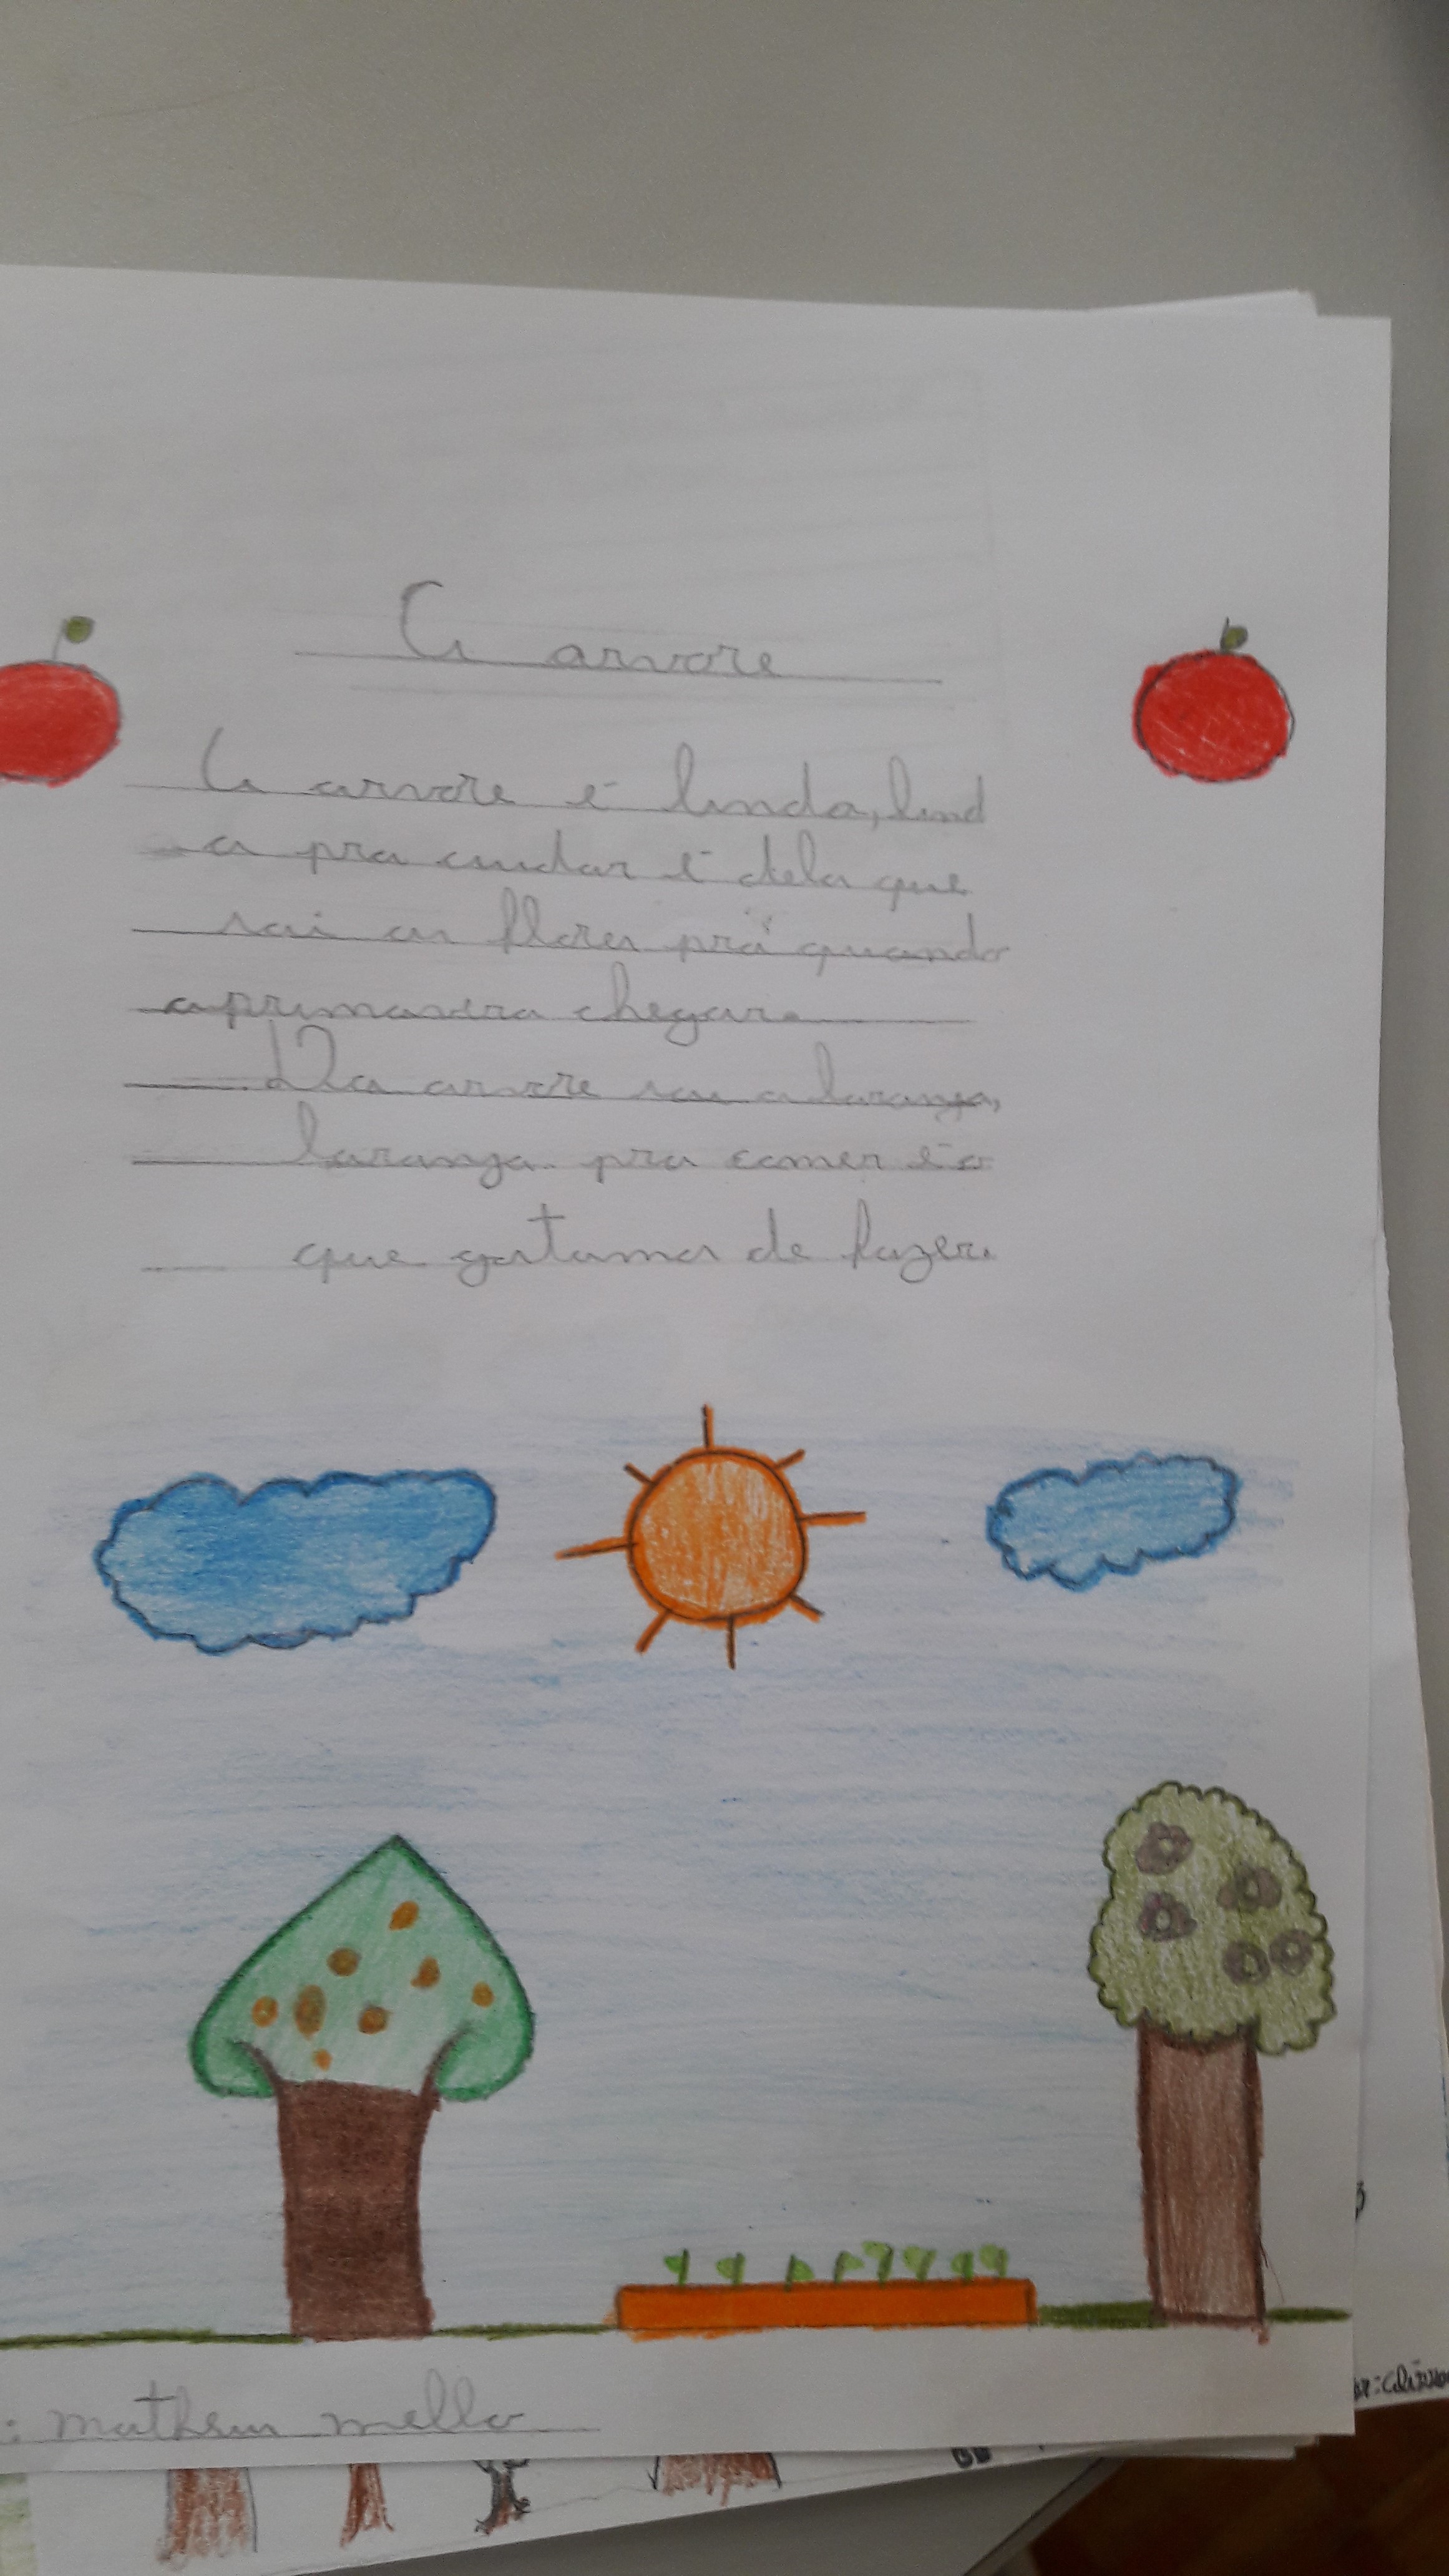 A arvore
A arvore é linda, lind
a pra cuidar é dela que
sai as flores prá quando
a primavera chegar.
Da arvore sai a laranja,
laranja pra comer é o
que gostamos de fazer.
: matheus mello